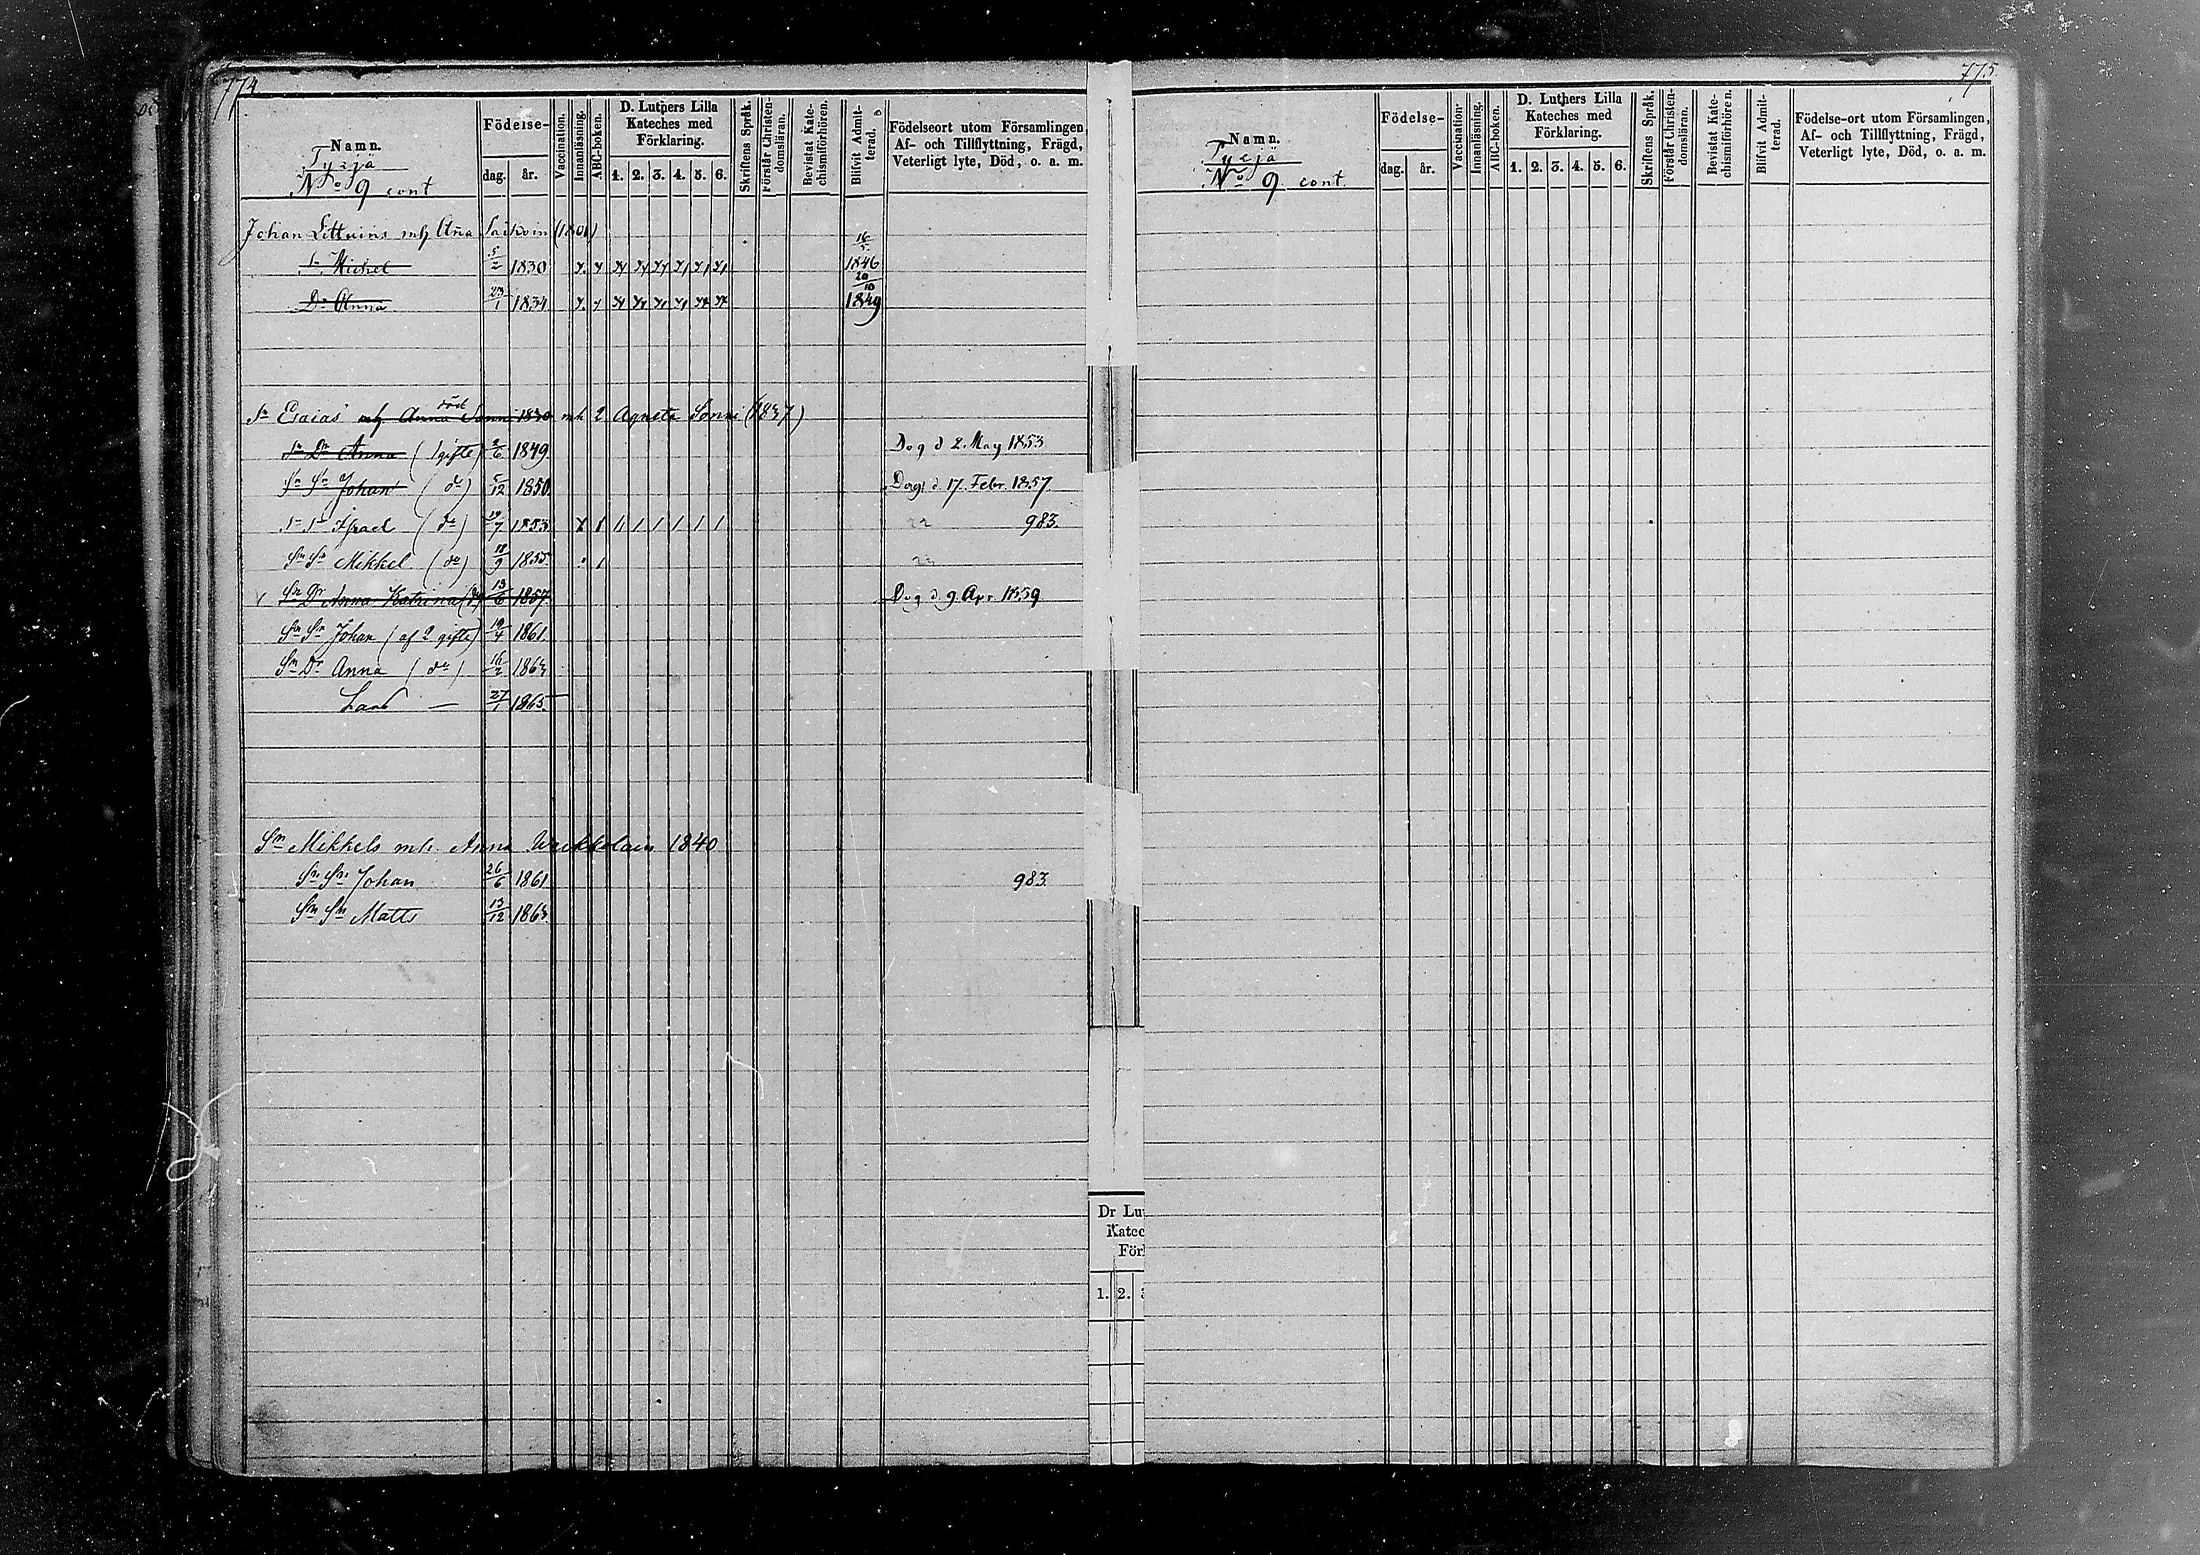 774
Namn.
Tyrjä
No 9 cont
Födelse-
dag. år.
Vaccination.
Innanläsning.
ABC-boken.
D. Luthers Lilla
Kateches med
Förklaring.
1. 2. 3. 4. 5. 6.
Skriftens Språk.
Förstår Christen-
domsläran.
Bevistat Kate-
chismiförhören.
Blifvit Admit-
terad.
Födelseort utom Församlingen,
Af- och Tillflyttning, Frägd,
Veterligt lyte, Död, o. a. m.
Johan mh Anna (1801)
Sn Michel 5/2 1830 16/5 1846
Dr Anna 23/1 1834 20/10 1849
Sn Esaias mh Anna Sonni 1830 död mh 2 Agneta Sonni (1837)
Sn Dr Anna (1 gifte) 2/6 1849 Dog d 2. May 1853
Sn Sn Johan (do) 5/12 1850 Dog d. 17. Febr. 1857
Sn Sn Israel (do) 19/7 1853 983.
Sn Sn Mikkel (do) 18/9 1855
Sn Dr Anna Katrina (do) 13/6 1857 Dog d. 9. Apr. 1859
Sn Sn Johan (af 2 gifte) 19/4 1861
Sn Dr Anna (do) 16/2 1863
Lars — 27/1 1865
Sn Mikkels mh. Anna 1840
Sn Sn Johan 26/6 1861 983.
Sn Sn Matts 13/12 1863
Dr Lu
Katec
Förl
1. 2. 3
775.
Namn.
Tyrjä
No 9 cont.
Födelse-
dag. år.
Vaccination.
Innanläsning.
ABC-boken.
D. Luthers Lilla
Kateches med
Förklaring.
1. 2. 3. 4. 5. 6.
Skriftens Språk.
Förstår Christen-
domsläran.
Bevistat Kate-
chismiförhören.
Blifvit Admit-
terad.
Födelse-ort utom Församlingen,
Af- och Tillflyttning, Frägd,
Veterligt lyte, Död, o. a. m.